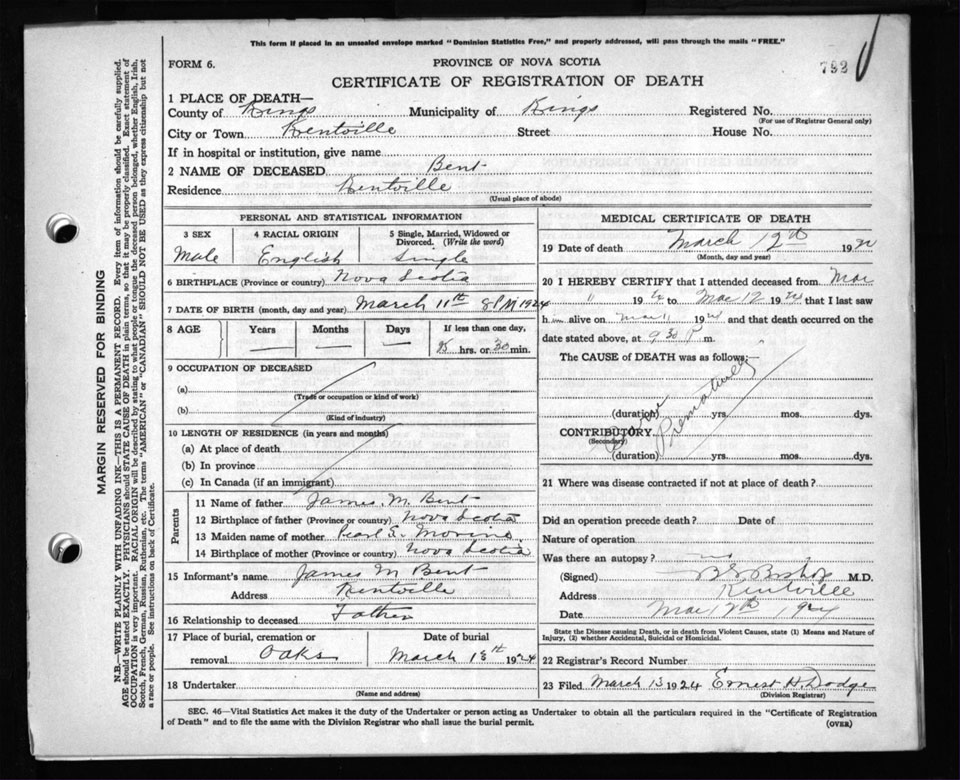 This form if placed in an unsealed envelope marked "Dominion Statistics Free," and properly addressed, will pass through the mails "FREE."
FORM 6.
PROVINCE OF NOVA SCOTIA
792
CERTIFICATE OF REGISTRATION OF DEATH
1 PLACE OF DEATH—
County of Kings Municipality of Kings Registered No.
(For use of Registrar General only)
City or Town Kentville Street House No.
If in hospital or institution, give name
2 NAME OF DECEASED Bent
Residence Kentville
(Usual place of abode)
PERSONAL AND STATISTICAL INFORMATION
3 SEX
Male
4 RACIAL ORIGIN
English
5 Single, Married, Widowed or Divorced. (Write the word)
Single
6 BIRTHPLACE (Province or country) Nova Scotia
7 DATE OF BIRTH (month, day and year) March 11th 8 PM 1924
8 AGE Years Months Days If less than one day,
hrs. or 30 min.
9 OCCUPATION OF DECEASED
(a)
(Trade or occupation or kind of work)
(b)
(Kind of industry)
10 LENGTH OF RESIDENCE (in years and months)
(a) At place of death
(b) In province
(c) In Canada (if an immigrant)
Parents
11 Name of father James M. Bent
12 Birthplace of father (Province or country) Nova Scotia
13 Maiden name of mother Pearl
14 Birthplace of mother (Province or country) Nova Scotia
15 Informant's name James M Bent
Address Kentville
16 Relationship to deceased Father
17 Place of burial, cremation or removal Oaks
Date of burial
March 13th 1924
18 Undertaker
(Name and address)
MEDICAL CERTIFICATE OF DEATH
19 Date of death March 12th 192
(Month, day and year)
20 I HEREBY CERTIFY that I attended deceased from Mar
11 192 to Mar 12 1924 that I last saw
h m alive on Mar 11 1924 and that death occurred on the
date stated above, at 9 30 P m.
The CAUSE of DEATH was as follows:—
Prematurely
(duration) yrs. mos. dys.
CONTRIBUTORY
(Secondary)
(duration) yrs. mos. dys.
21 Where was disease contracted if not at place of death?
Did an operation precede death? Date of
Nature of operation
Was there an autopsy? no
(Signed) Bishop M.D.
Address Kentville
Date Mar 12th 1924
State the Disease causing Death, or in death from Violent Causes, state (1) Means and Nature of
Injury, (2) whether Accidental, Suicidal or Homicidal.
22 Registrar's Record Number
23 Filed March 13 1924 Ernest H. Dodge
(Division Registrar)
SEC. 46—Vital Statistics Act makes it the duty of the Undertaker or person acting as Undertaker to obtain all the particulars required in the "Certificate of Registration
of Death" and to file the same with the Division Registrar who shall issue the burial permit.
(OVER)
MARGIN RESERVED FOR BINDING
N.B.—WRITE PLAINLY WITH UNFADING INK—THIS IS A PERMANENT RECORD. Every item of information should be carefully supplied.
AGE should be stated EXACTLY. PHYSICIANS should STATE CAUSE OF DEATH in plain terms, so that it may be properly classified. Exact statement of
OCCUPATION is very important. RACIAL ORIGIN will be described by stating to what people or tongue the deceased person belonged, whether English, Irish,
Scotch, French, German, Russian, Ruthenian, etc. The terms "AMERICAN" or "CANADIAN" SHOULD NOT BE USED as they express citizenship but not
a race or people. See instructions on back of Certificate.